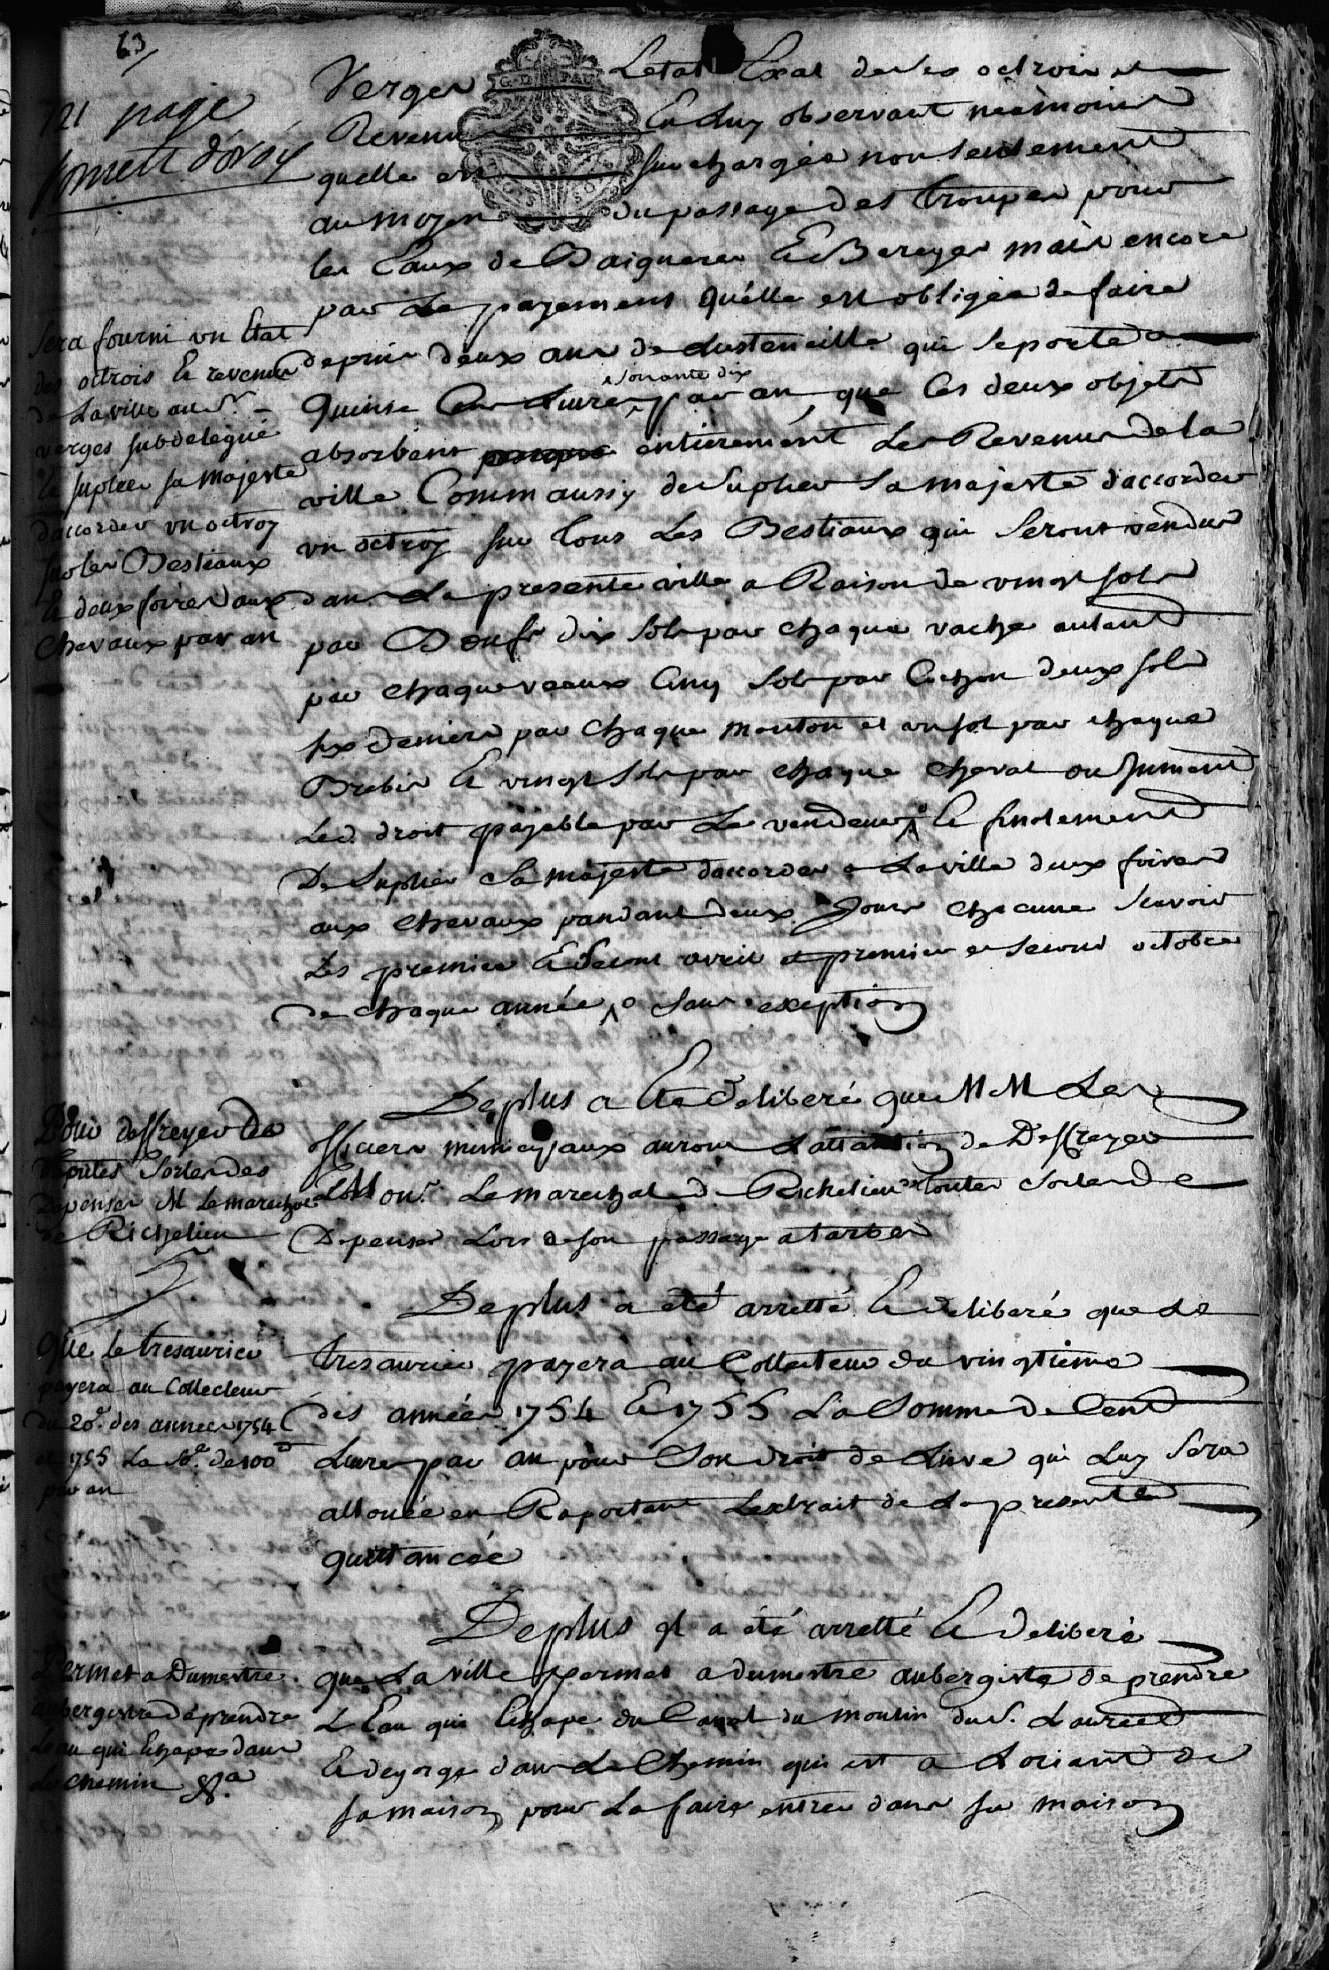 63
121 page
Verges Letat Exat de ses octrois et
Revenus En Luy observant neamoins
quelle est surchargée non seulement
au moyen du passage des troupes pour
les Eaux de Baigneres & Bareges mais encore
par Le payement quélle est obligée de faire
depuis deux ans de Lustencille qui se porte a
Quinse Cens Livres Nonante dix par an, que les deux objets
absorbent entierement Les Revenus de la
ville Comm aussy de suplier Sa majesté d'accorder
un octroy sur tous Les Bestiaux qui seront vendus
dans La presente ville a Raison de vingt sols
par Bœufs dix sols par chaque vache autant
par chaque veaux Cinq sols par Cochon deux sols
six deniers par chaque mouton et un sol par chaque
Brebis & vingt sols par chaque cheval ou Jument
Led. droit payable par Le vendeur & finalement
De Suplier Sa majesté daccorder a La ville deux foires
aux chevaux pandant deux Jours chacune scavoir
Les premier & second avril et premier et second octobre
de chaque année sans exeption
Sera fourni un Etat
des octrois & revenus
de La ville au Sr.
verges subdelegué
& suplier sa majesté
d'accorder un octroy
sur les Bestiaux
& deux foires aux
chevaux par an
De plus a été deliberé que MM Les
officiers municipaux auront Lattantion de Deffrayer
Monr. Le marechal de Richelieu de toutes sortes de
Depenses Lors de son passage a tarbes
Pour deffreyer de
toutes sortes des
Depenses M. Le marechal
de Richelieu
De plus a été arretté & deliberé que Le
tresaurier payera au Collecteur du vingtieme
des années 1754 & 1755 La Somme de Cent
Livres par an pour Son droit de Livre qui Luy sera
allouée en Raportant Lextrait de La presente
quittancée
Que le tresaurier
payera au Collecteur
du 20e. des années 1754
et 1755 La Se. de 100
par an
De plus il a été arretté & deliberé
que La ville permet a dumestre aubergiste de prendre
L'Eau qui Echape du Canal du moulin du S. Laureed
& degorge dans Le Chemin qui est a Loriant de
sa maison pour La faire entrer dans sa maison
Permet a Dumestre
aubergiste de prendre
Leau qui Echape dans
Le chemin &a.